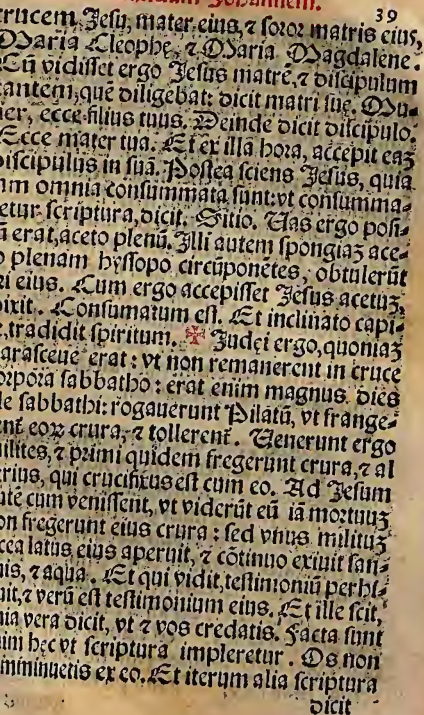 Johannem.
39
crucem Jesu, mater eius, ⁊ soror matris eius,
Maria Cleophe, ⁊ Maria Magdalene.
Cū vidisset ergo Jesus matrē, ⁊ discipulum
tantem, quē diligebat: dicit matri suę. Mu-
lier, ecce filius tuus. Deinde dicit discipulo:
Ecce mater tua. Et ex illa hora, accepit eaȝ
discipulus in suā. Postea sciens Jesus, quia
am omnia consummata sunt: vt consumma-
etur scriptura, dicit. Sitio. Uas ergo posi-
ū erat, aceto plenū. Illi autem spongiaȝ ace-
o plenam hyssopo circūponētes, obtulerūt
ri eius. Cum ergo accepisset Jesus acetuȝ,
ixit. Consumatum est. Et inclinato capi-
e, tradidit spiritum. ✠ Judęi ergo, quoniaȝ
arasceue erat: vt non remanerent in cruce
orpora sabbatho: erat enim magnus dies
le sabbathi: rogauerunt Pilatū, vt frange-
ent eoꝝ crura, ⁊ tollerent. Uenerunt ergo
ilites, ⁊ primi quidem fregerunt crura, ⁊ al
erius, qui crucifixus est cum eo. Ad Jesum
utē cum venissent, vt viderūt eū iā mortuuȝ
on fregerunt eius crura: sed vnus milituȝ
cea latus eius aperuit, ⁊ cōtinuo exiuit san-
uis, ⁊ aqua. Et qui vidit, testimoniū perhi-
uit, ⁊ verū est testimonium eius. Et ille scit,
uia vera dicit, vt ⁊ vos credatis. Facta sunt
nim hęc vt scriptura impleretur. Os non
omminuetis ex eo. Et iterum alia scriptura
dicit